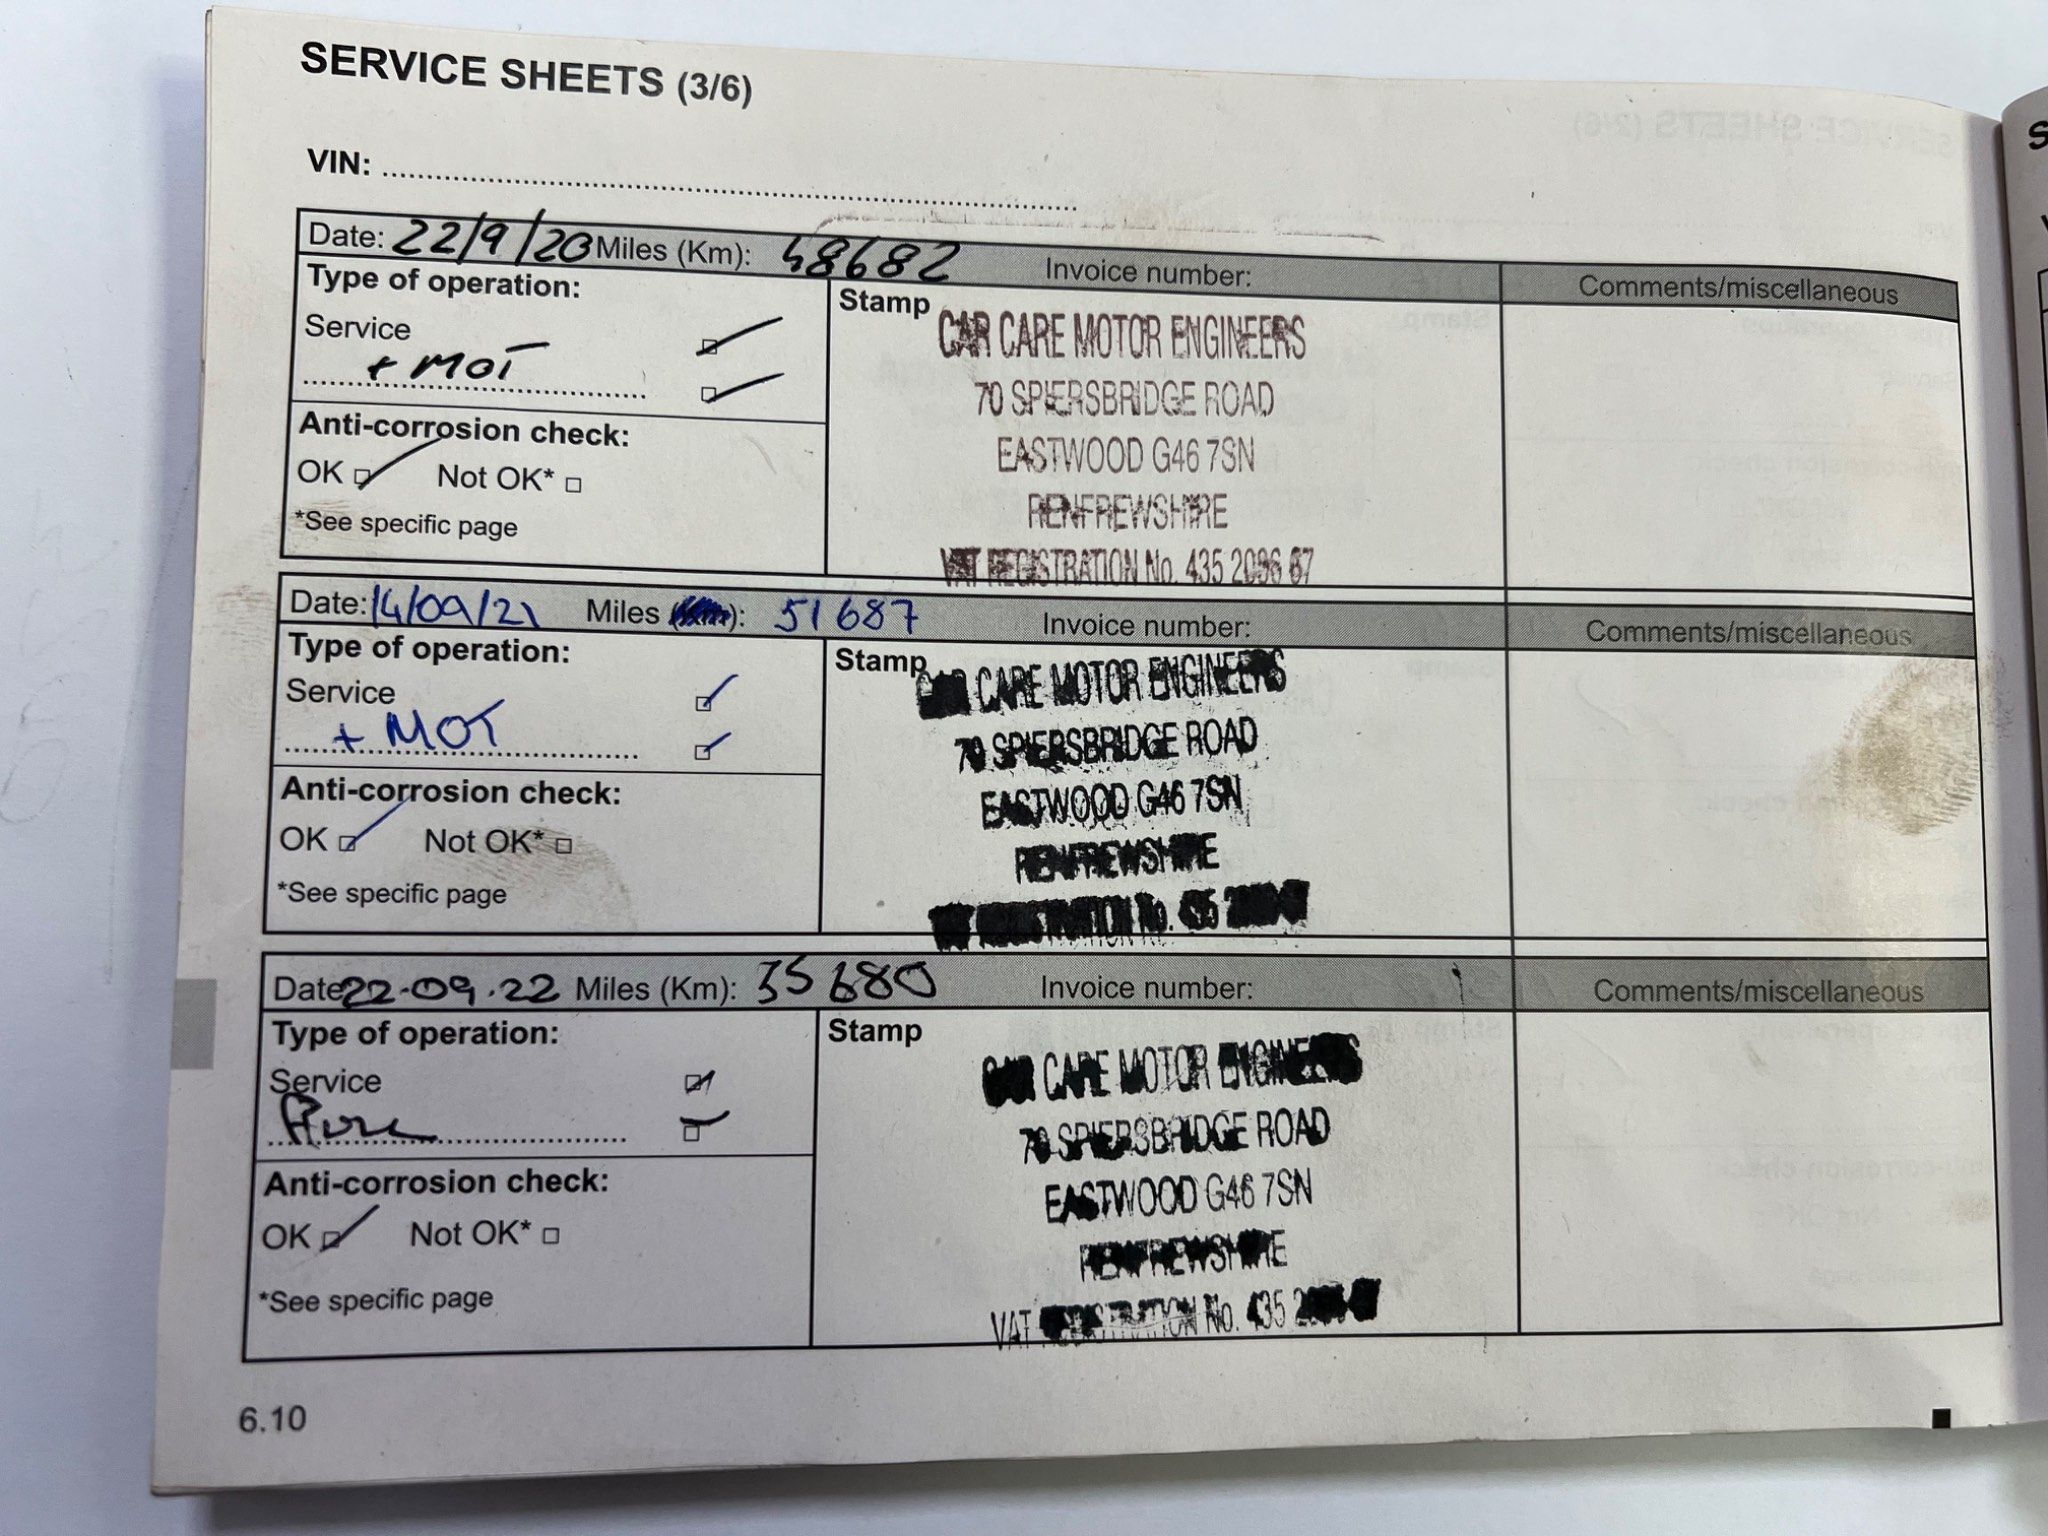 SERVICE SHEETS (3/6)
VIN:
Date: 22/9/20 Miles (Km): 48682 Invoice number: Comments/miscellaneous
Type of operation:
Service
+ MOT
Anti-corrosion check:
OK Not OK*
*See specific page
Stamp
CAR CARE MOTOR ENGINEERS
70 SPIERSBRIDGE ROAD
EASTWOOD G46 7SN
RENFREWSHIRE
VAT REGISTRATION No. 435 2096 67
Date: 14/09/21 Miles : 51687 Invoice number: Comments/miscellaneous
Type of operation:
Service
+ MOT
Anti-corrosion check:
OK Not OK*
*See specific page
Stamp
CAR CARE MOTOR ENGINEERS
70 SPIERSBRIDGE ROAD
EASTWOOD G46 7SN
RENFREWSHIRE
VAT REGISTRATION No. 435
Date 22-09.22 Miles (Km): 35680 Invoice number: Comments/miscellaneous
Type of operation:
Service
Anti-corrosion check:
OK Not OK*
*See specific page
Stamp
CAR CARE MOTOR ENGINEERS
70 SPIERSBRIDGE ROAD
EASTWOOD G46 7SN
RENFREWSHIRE
VAT REGISTRATION No. 435
6.10